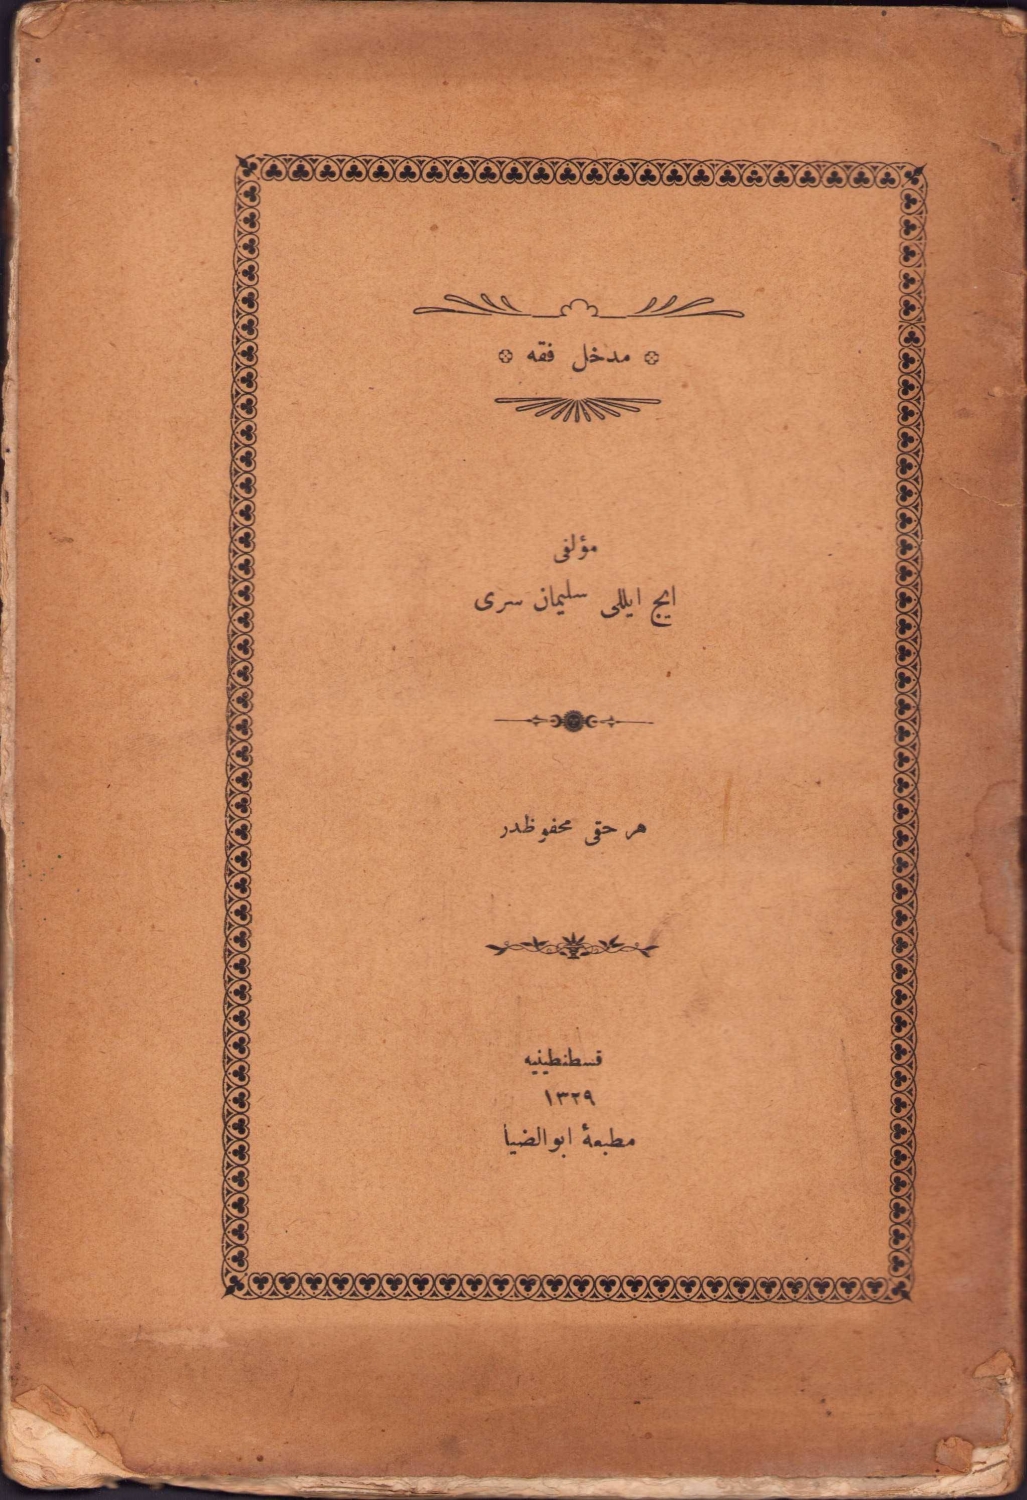 مدخل فقه
مؤلفی
ایچ ایللی سلیمان سری
هر حقی محفوظدر
قسطنطینیه
١٣٢٩
مطبعۀ ابوالضیا